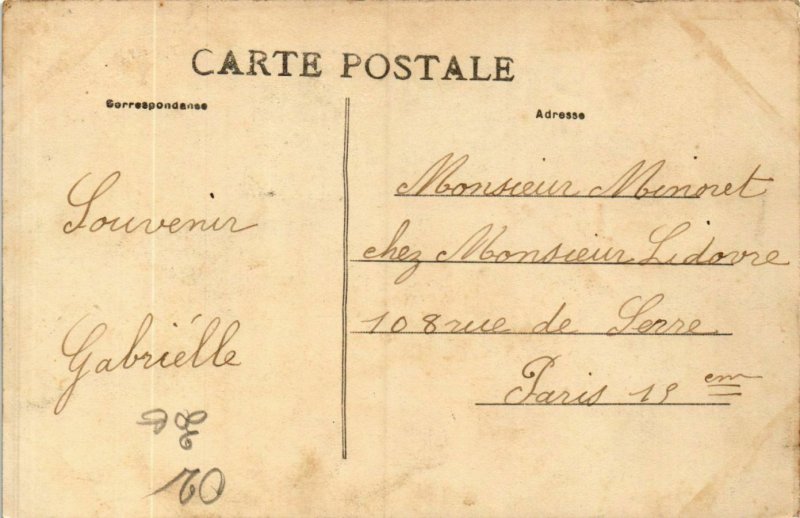 CARTE POSTALE
Correspondanse
Adresse
Souvenir
Gabriélle
Monsieur Minoret
chez Monsieur Lidovre
108 rue de Serre
Paris 15 em